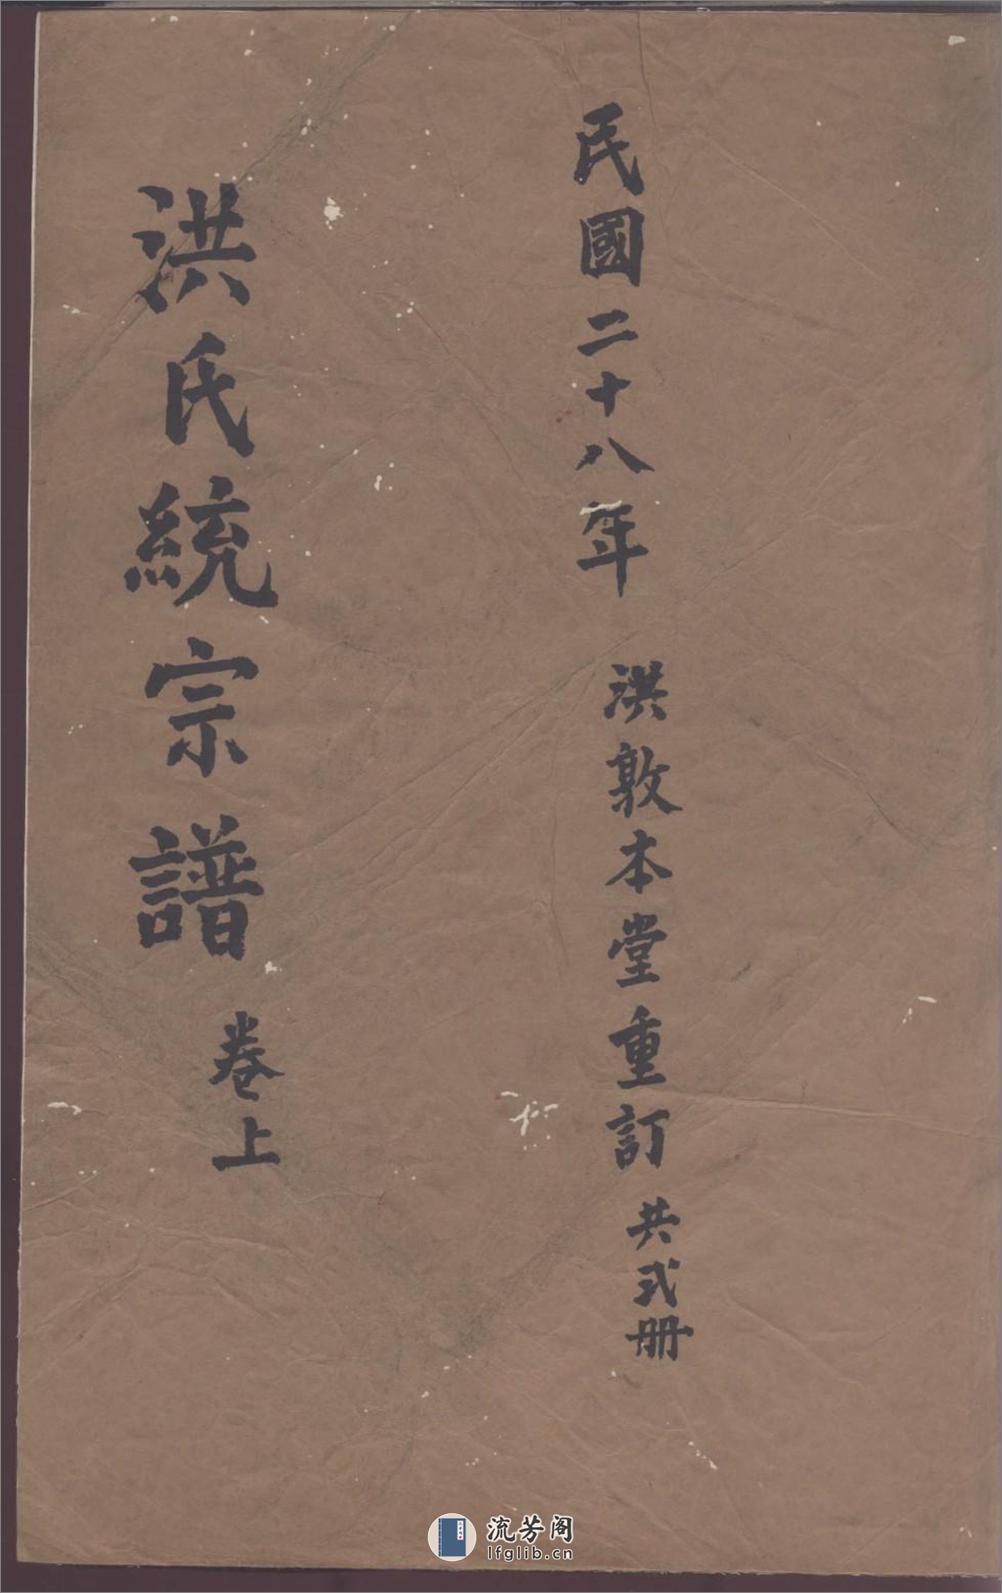 民國二十八年 洪敦本堂重訂 共弍册
洪氏統宗譜 卷上
流芳阁
lfglib.cn